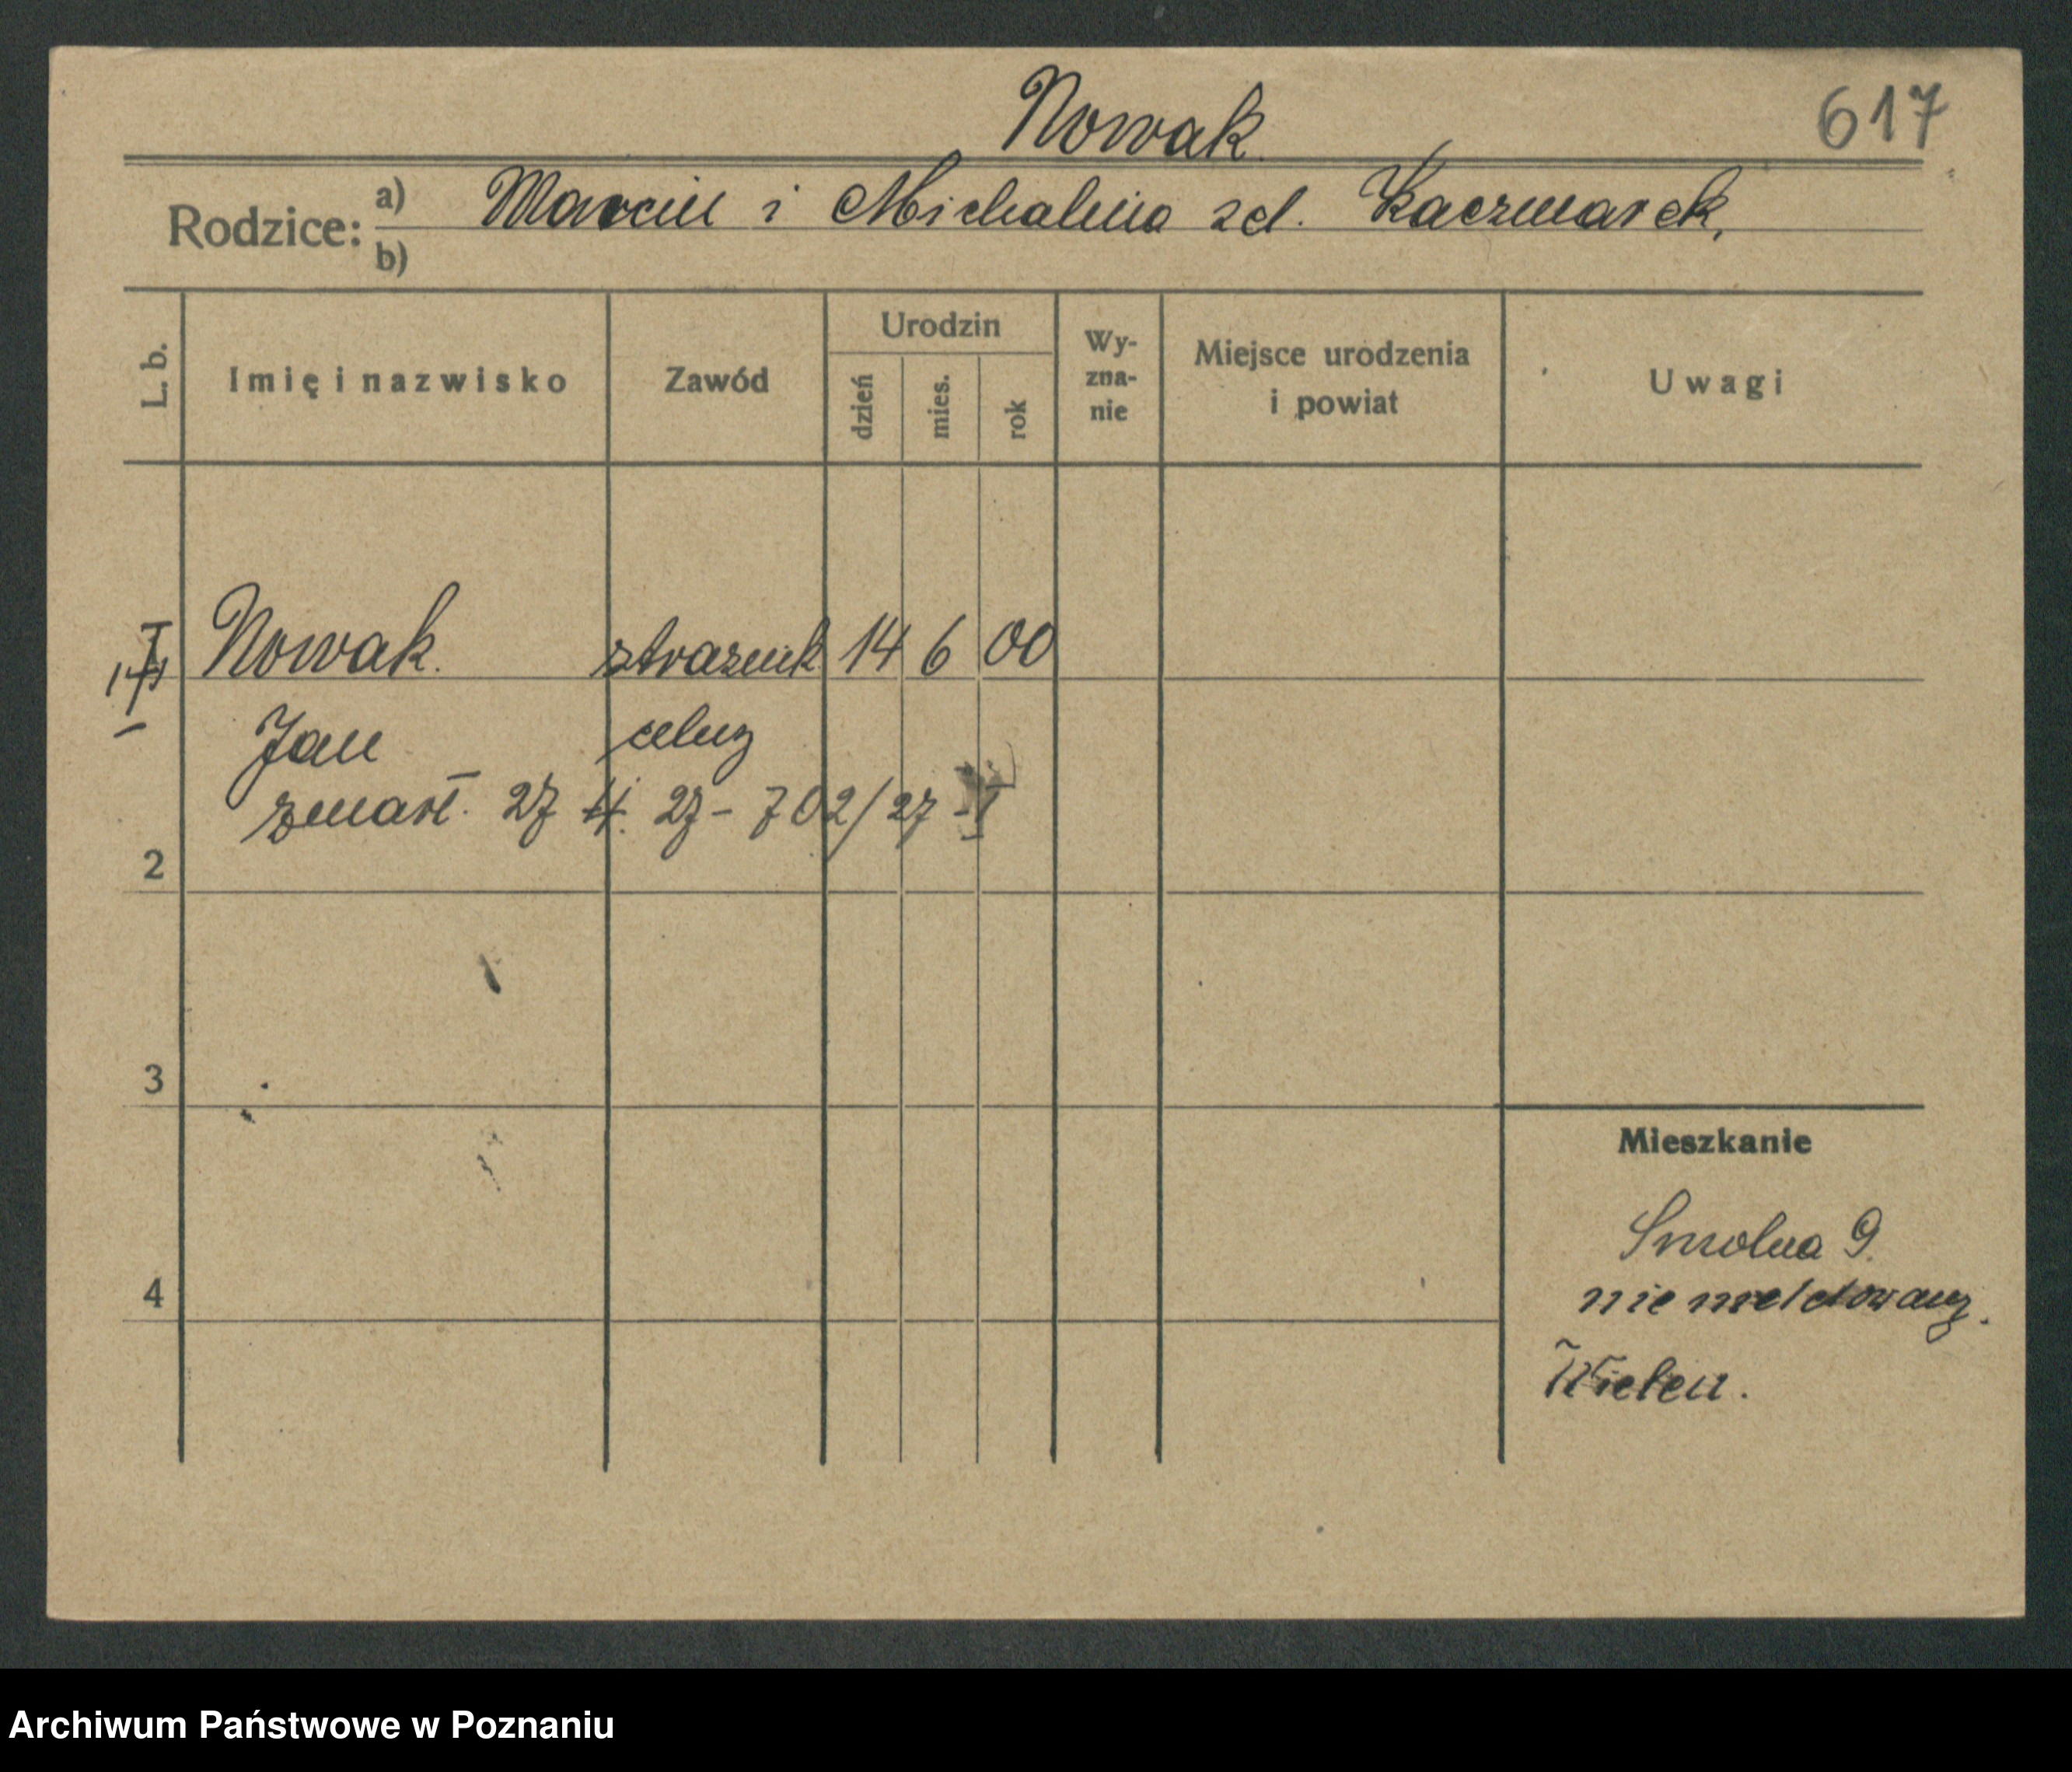 Nowak
617
Rodzice: a) Marcin i Michalina zd. Kaczmarek.
b)
L. b.
Imię i nazwisko
Zawód
Urodzin
dzień
mies.
rok
Wy-
zna-
nie
Miejsce urodzenia
i powiat
Uwagi
Nowak. strażnik 14 6 00
Jan celny
zmarł. 27 4. 27 - 702/27
2
3
4
Mieszkanie
Smolna 9
nie meldowany.
Wieleń.
Archiwum Państwowe w Poznaniu